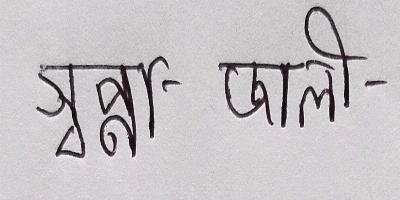 স্বপ্না- জালী-